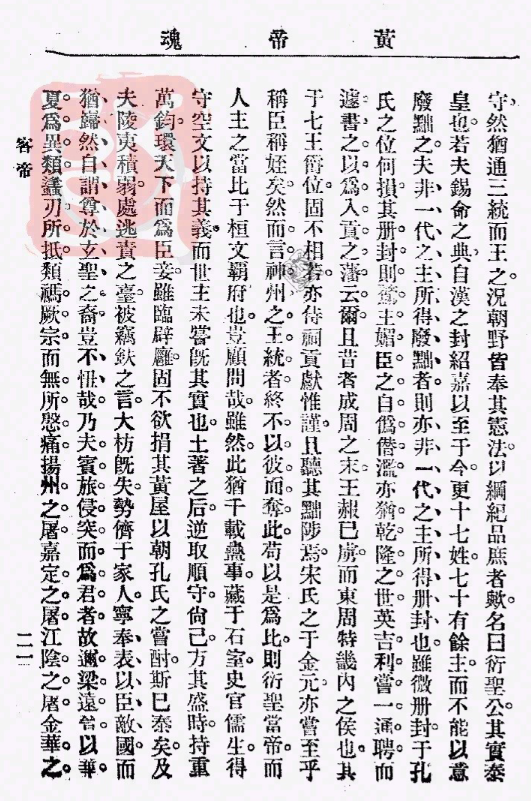 黃帝魂
守然猶通三統而王之況朝野皆奉其憲法以綱紀品庶者歟名曰衍聖公其實泰
皇也若夫錫命之典自漢之封紹嘉以至于今更十七姓七十有餘主而不能以意
廢黜之夫非一代之主所得廢黜者則亦非一代之主所得册封也雖微册封于孔
氏之位何損其册封則驚主媢臣之自爲僭濫亦猶乾隆之世英吉利嘗一通聘而
遽書之以爲入貢之藩云爾且昔者成周之末王赧已虜而東周特畿內之侯也其
于七王爵位固不相若亦侍祠貢獻惟謹且聽其黜陟焉宋氏之于金元亦嘗至乎
稱臣稱姪矣然而言神州之王統者終不以彼而奪此苟以是爲比則衍聖當帝而
人主之當比于桓文霸府也豈顧問哉雖然此猶千載事藏于石室史官儒生得
守空文以持其義而世主未嘗旣其實也土著之后逆取順守尙已方其盛時持重
萬鈞環天下而爲臣妾雖臨辟廱固不欲捐其黃屋以朝孔氏之嘗酎斯已泰矣及
夫陵夷積弱處逃責之臺被竊鈇之言大枋旣失勢儕于家人寧奉表以臣敵國而
猶巋然自謂尊於玄聖之裔豈不忸哉乃夫賓旅侵突而爲君者故邇梁遠以華
夏爲異類蠭刃所抵類禡厥宗而無所慇痛揚州之屠嘉定之屠江陰之屠金華之
客帝